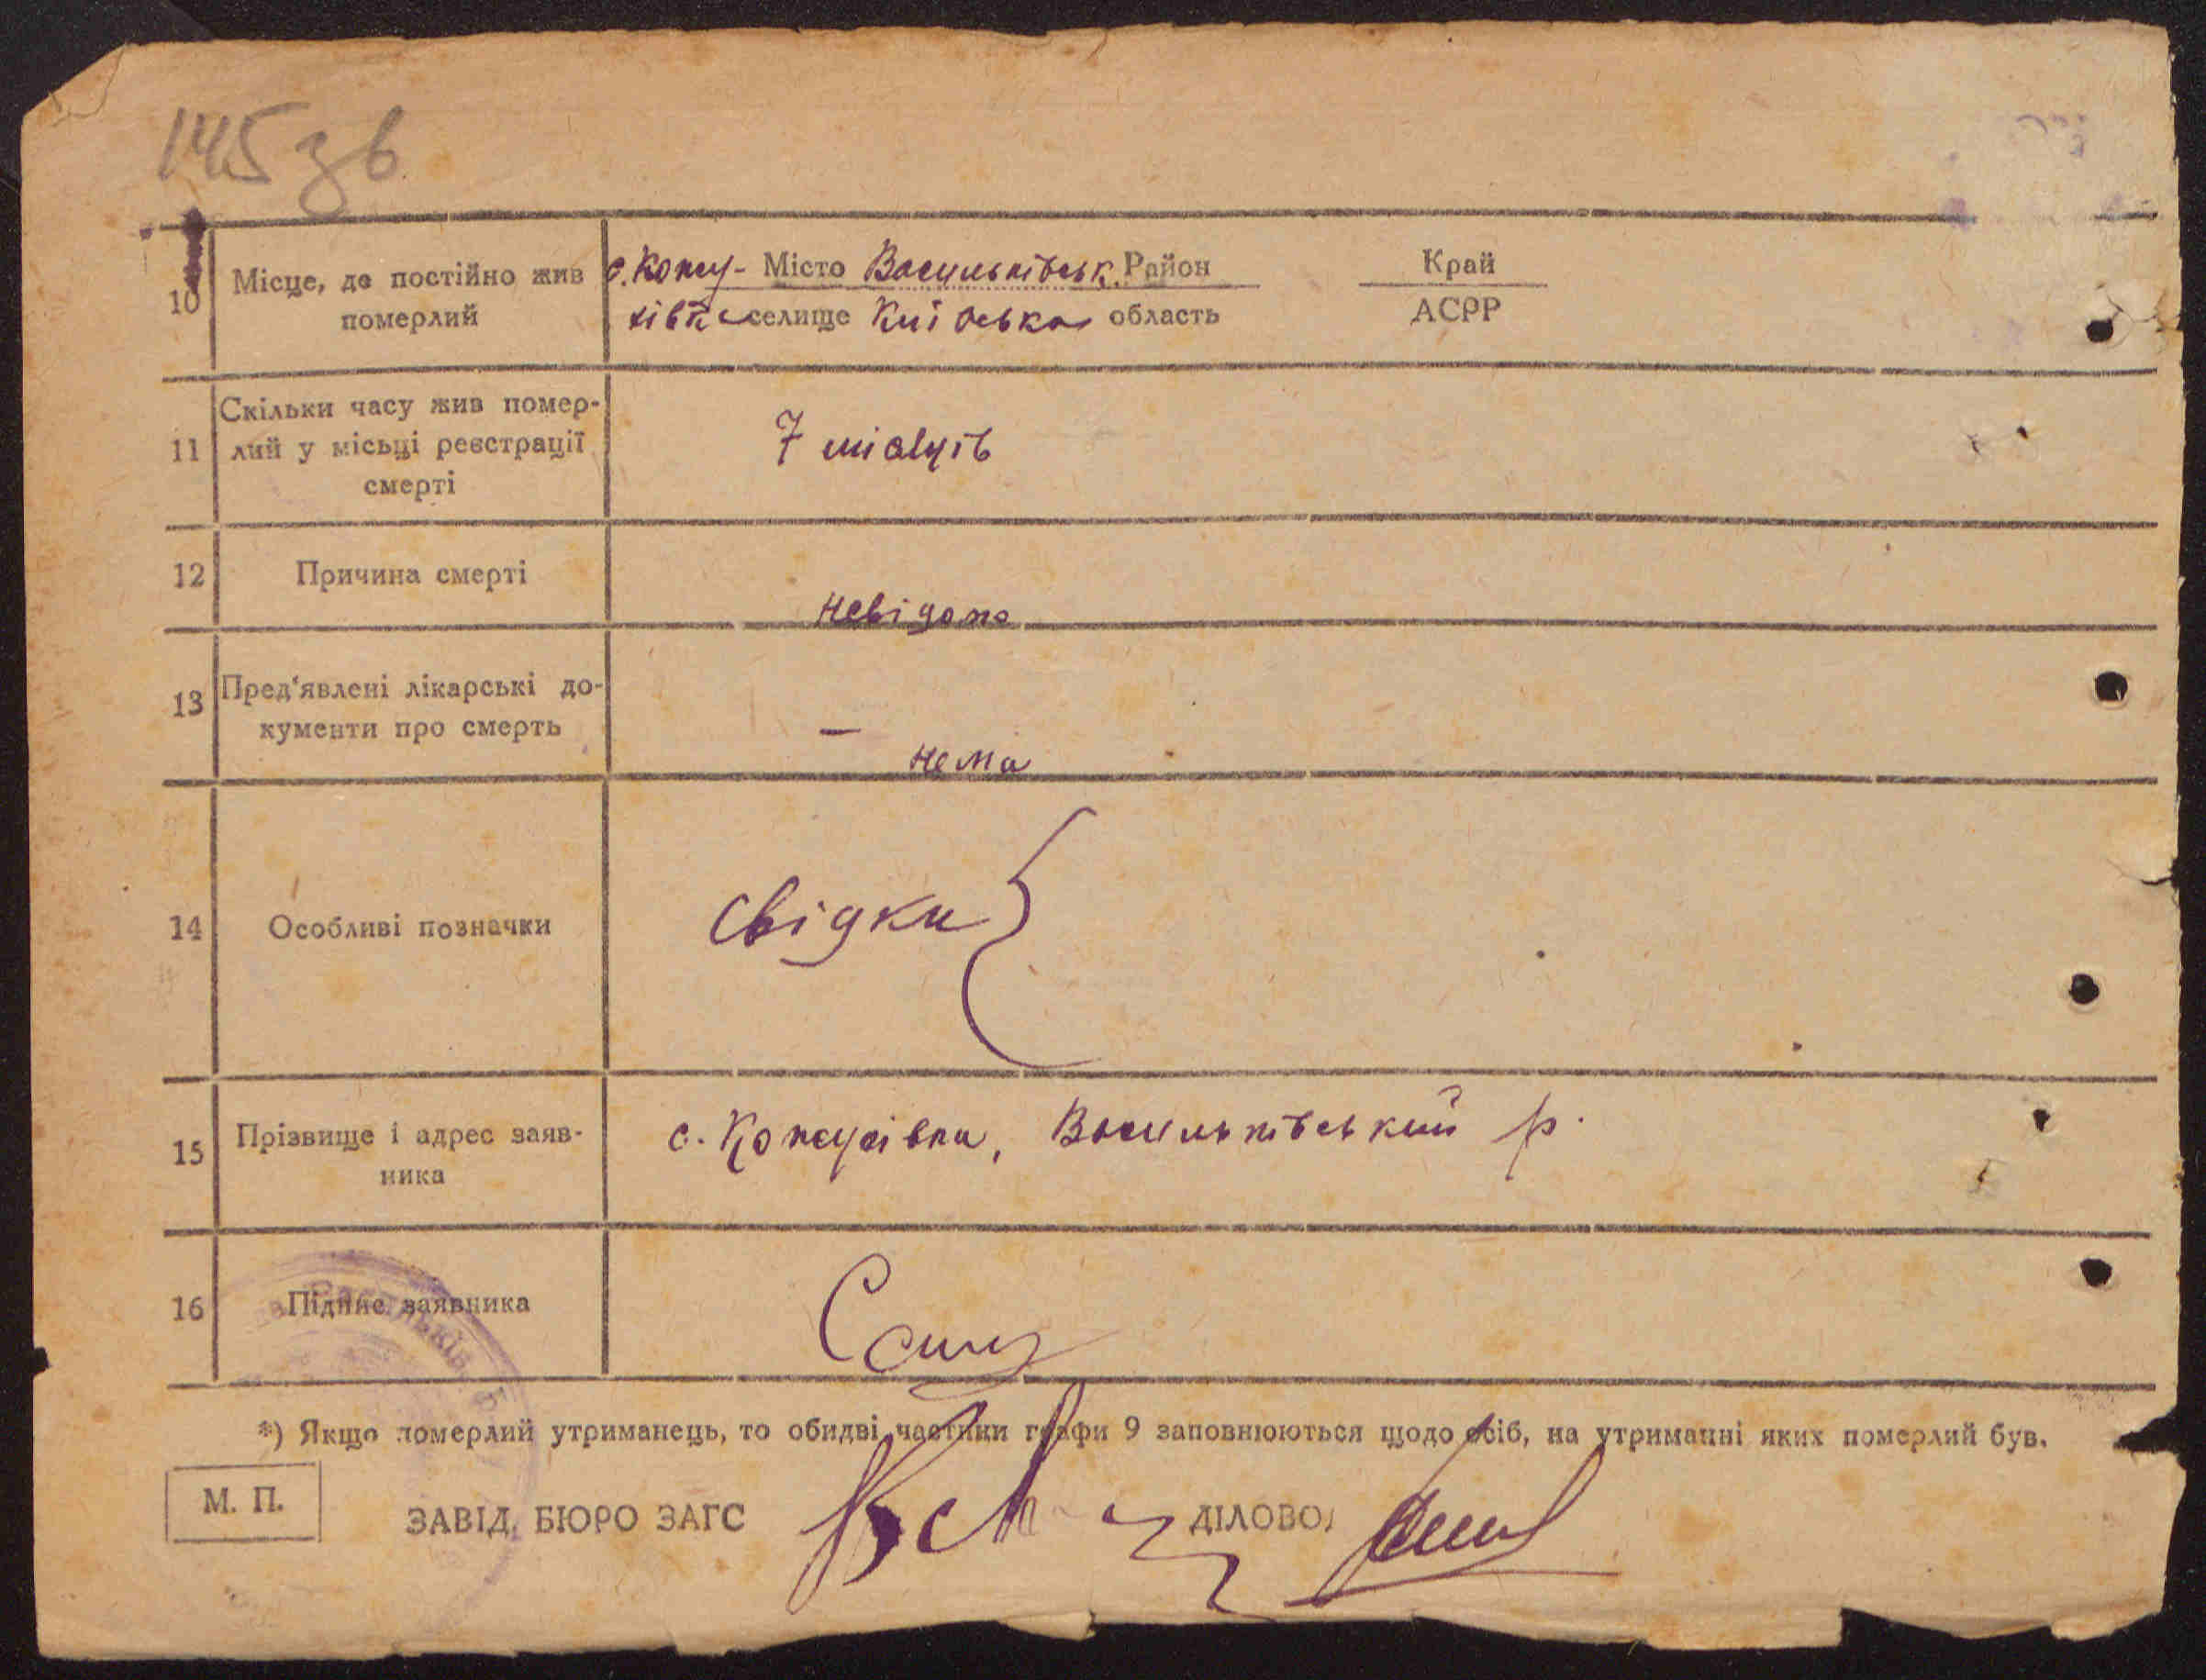 145 зв
10 Місце, де постійно жив с. Кожу- Місто Васильківськ. Район Край
померлий хівка селище Київська область АСРР
Скільки часу жив помер-
11 лий у місьці реєстрації 7 місяців
смерті
12 Причина смерті невідома
13 Пред'явлені лікарські до-
кументи про смерть —
нема
14 Особливі позначки Свідки {
15 Прізвище і адрес заяв- с. Кожухівка, Васильківський р.
ника
16 Підпис заявника
*) Якщо померлий утриманець, то обидві частини графи 9 заповнюються щодо осіб, на утриманні яких померлий був.
М. П.
ЗАВІД. БЮРО ЗАГС ДІЛОВОД